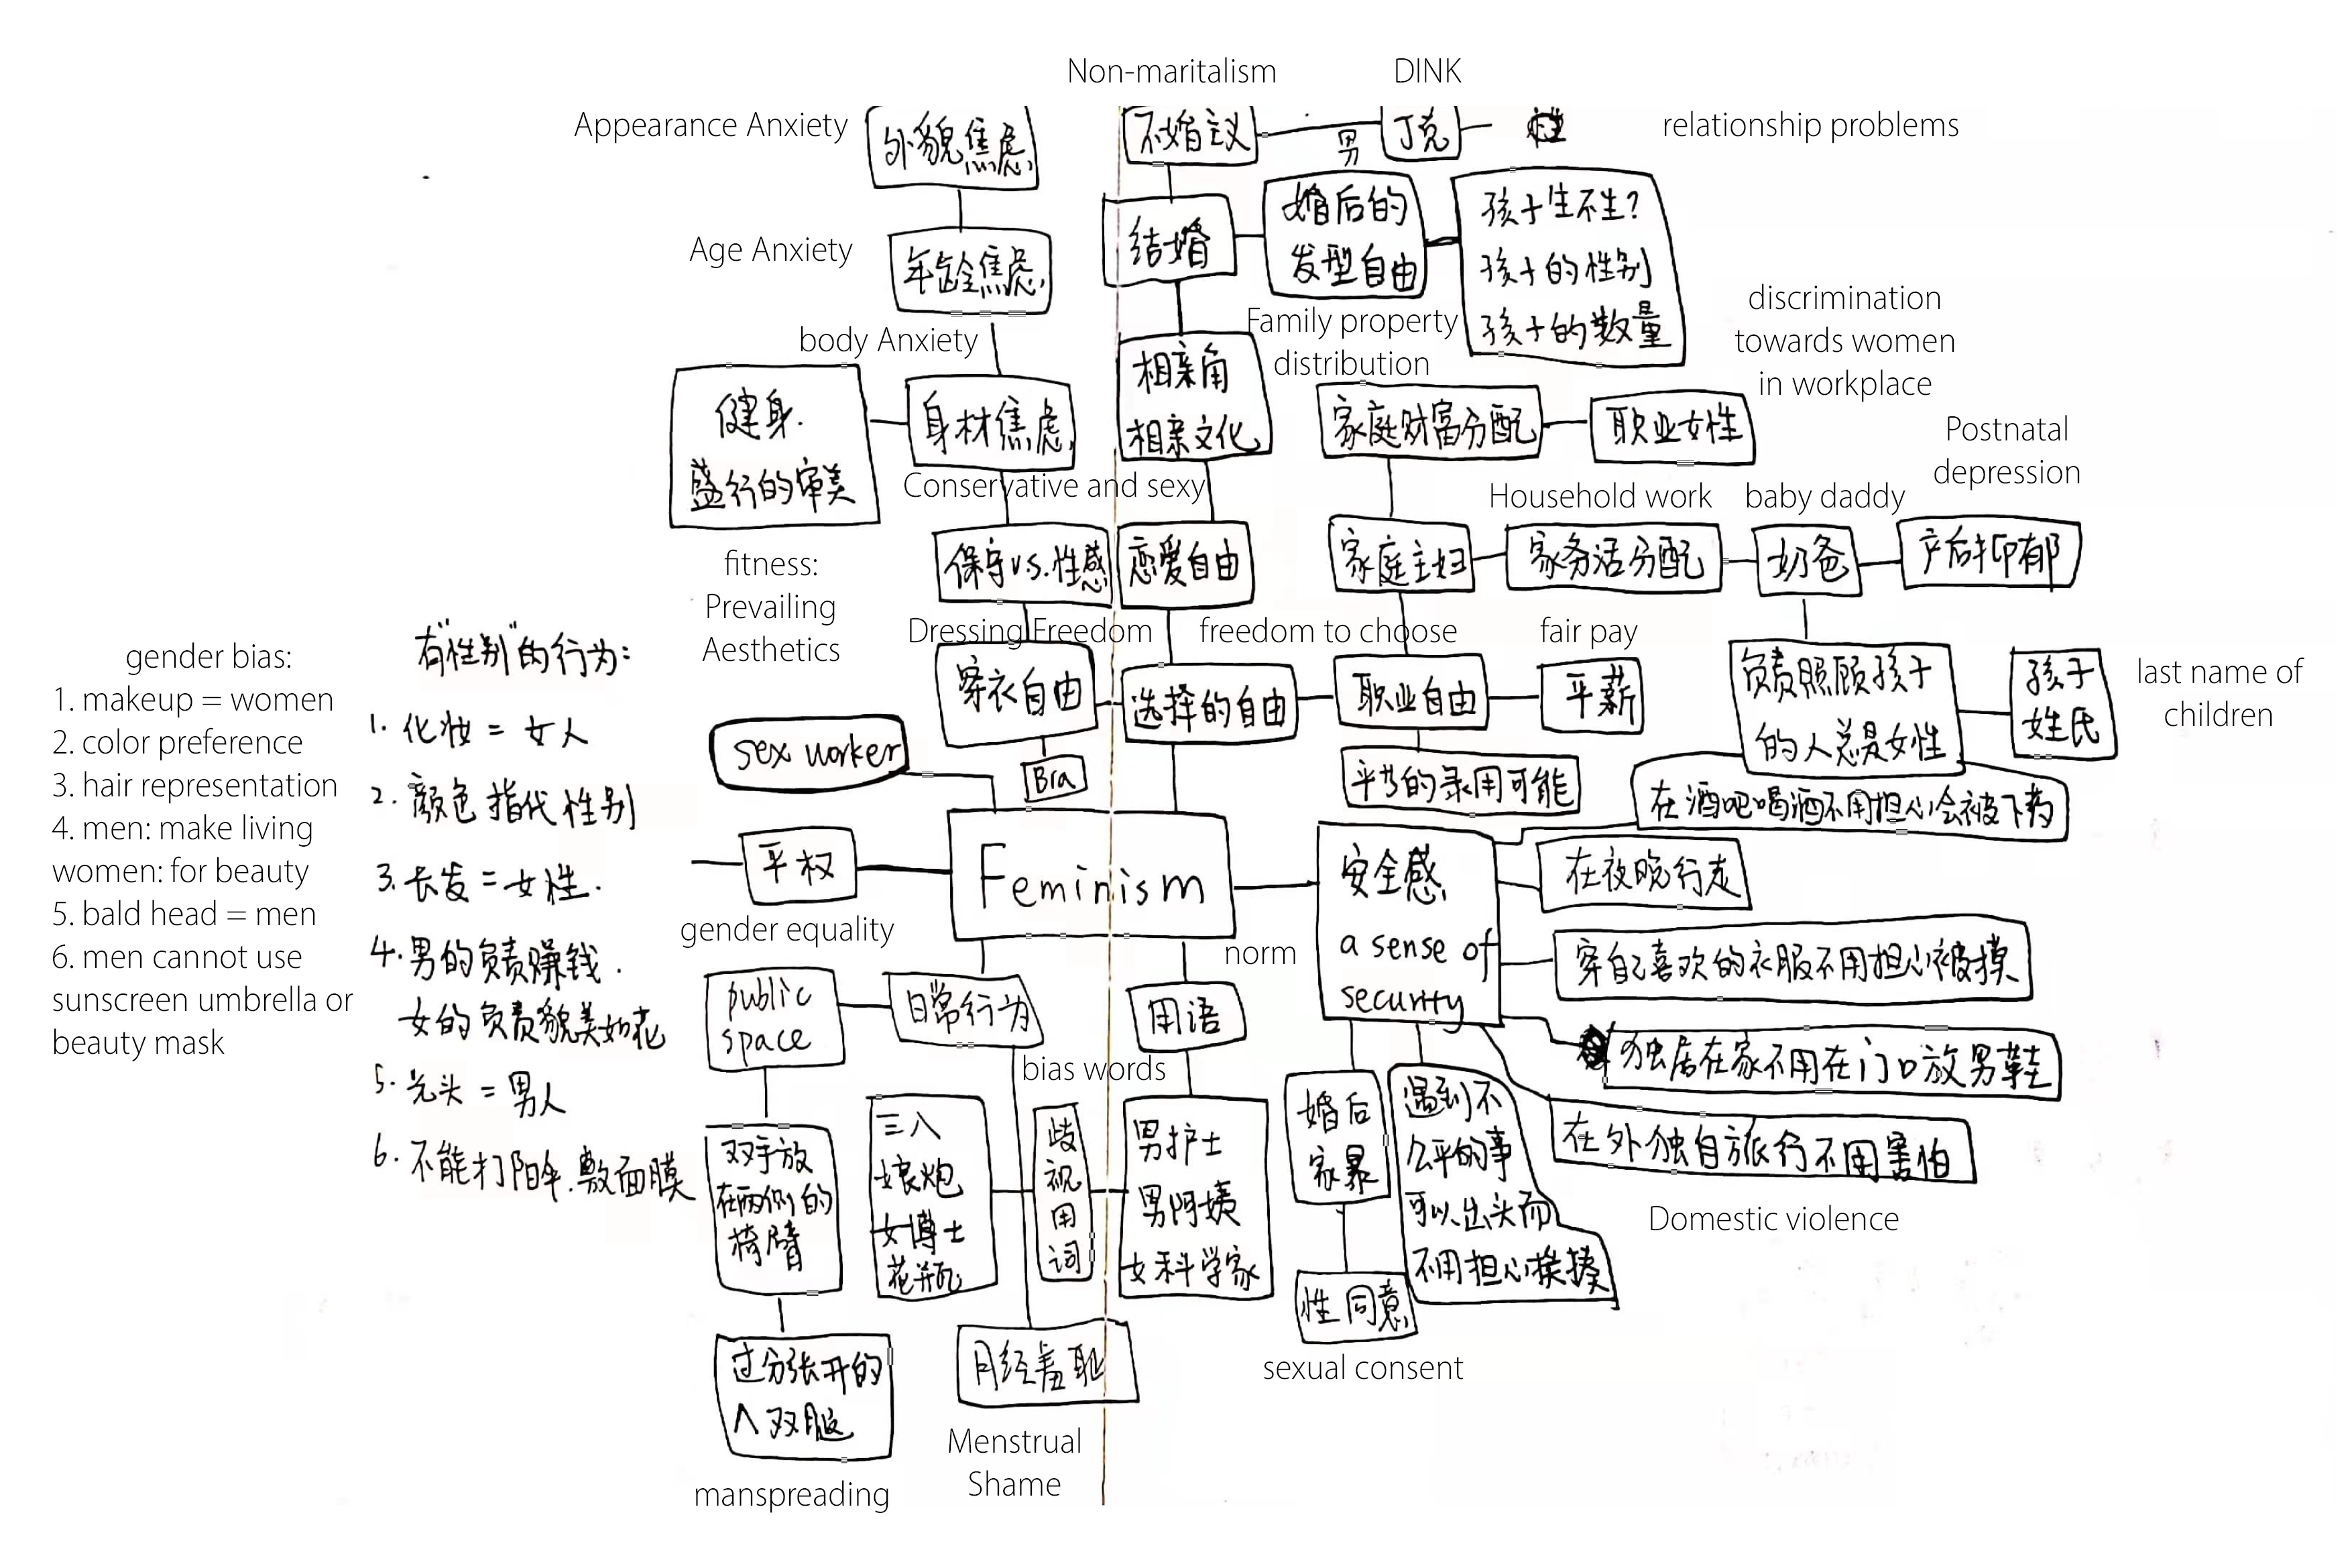 Non-maritalism
DINK
Appearance Anxiety
外貌焦虑
不婚主义
男
丁克
性
relationship problems
Age Anxiety
年龄焦虑
结婚
婚后的
发型自由
孩子生不生?
孩子的性别
孩子的数量
body Anxiety
Family property
distribution
discrimination
towards women
in workplace
健身.
盛行的审美
身材焦虑
相亲角
相亲文化
家庭财富分配
职业女性
Postnatal
depression
Conservative and sexy
Household work
baby daddy
fitness:
Prevailing
Aesthetics
保守v.s.性感
恋爱自由
家庭主妇
家务活分配
奶爸
产后抑郁
Dressing Freedom
freedom to choose
fair pay
穿衣自由
选择的自由
职业自由
平薪
负责照顾孩子
的人总是女性
孩子
姓氏
last name of
children
gender bias:
1. makeup = women
2. color preference
3. hair representation
4. men: make living
women: for beauty
5. bald head = men
6. men cannot use
sunscreen umbrella or
beauty mask
有"性别"的行为:
1. 化妆 = 女人
2. 颜色指代性别
3. 长发 = 女性.
4. 男的负责赚钱.
女的负责貌美如花
5. 光头 = 男人
6. 不能打阳伞.敷面膜
sex worker
Bra
平等的录用可能
在酒吧喝酒不用担心会被下药
平权
Feminism
安全感
a sense of
security
在夜晚行走
gender equality
norm
穿自己喜欢的衣服不用担心被摸
public
space
日常行为
用语
独居在家不用在门口放男鞋
bias words
双手放
在两侧的
椅臂
三八
娘炮
女博士
花瓶
歧视用词
男护士
男阿姨
女科学家
婚后
家暴
遇到不
公平的事
可以出头而
不用担心挨揍
在外独自旅行不用害怕
Domestic violence
性同意
sexual consent
过分张开的
双腿
月经羞耻
Menstrual
Shame
manspreading